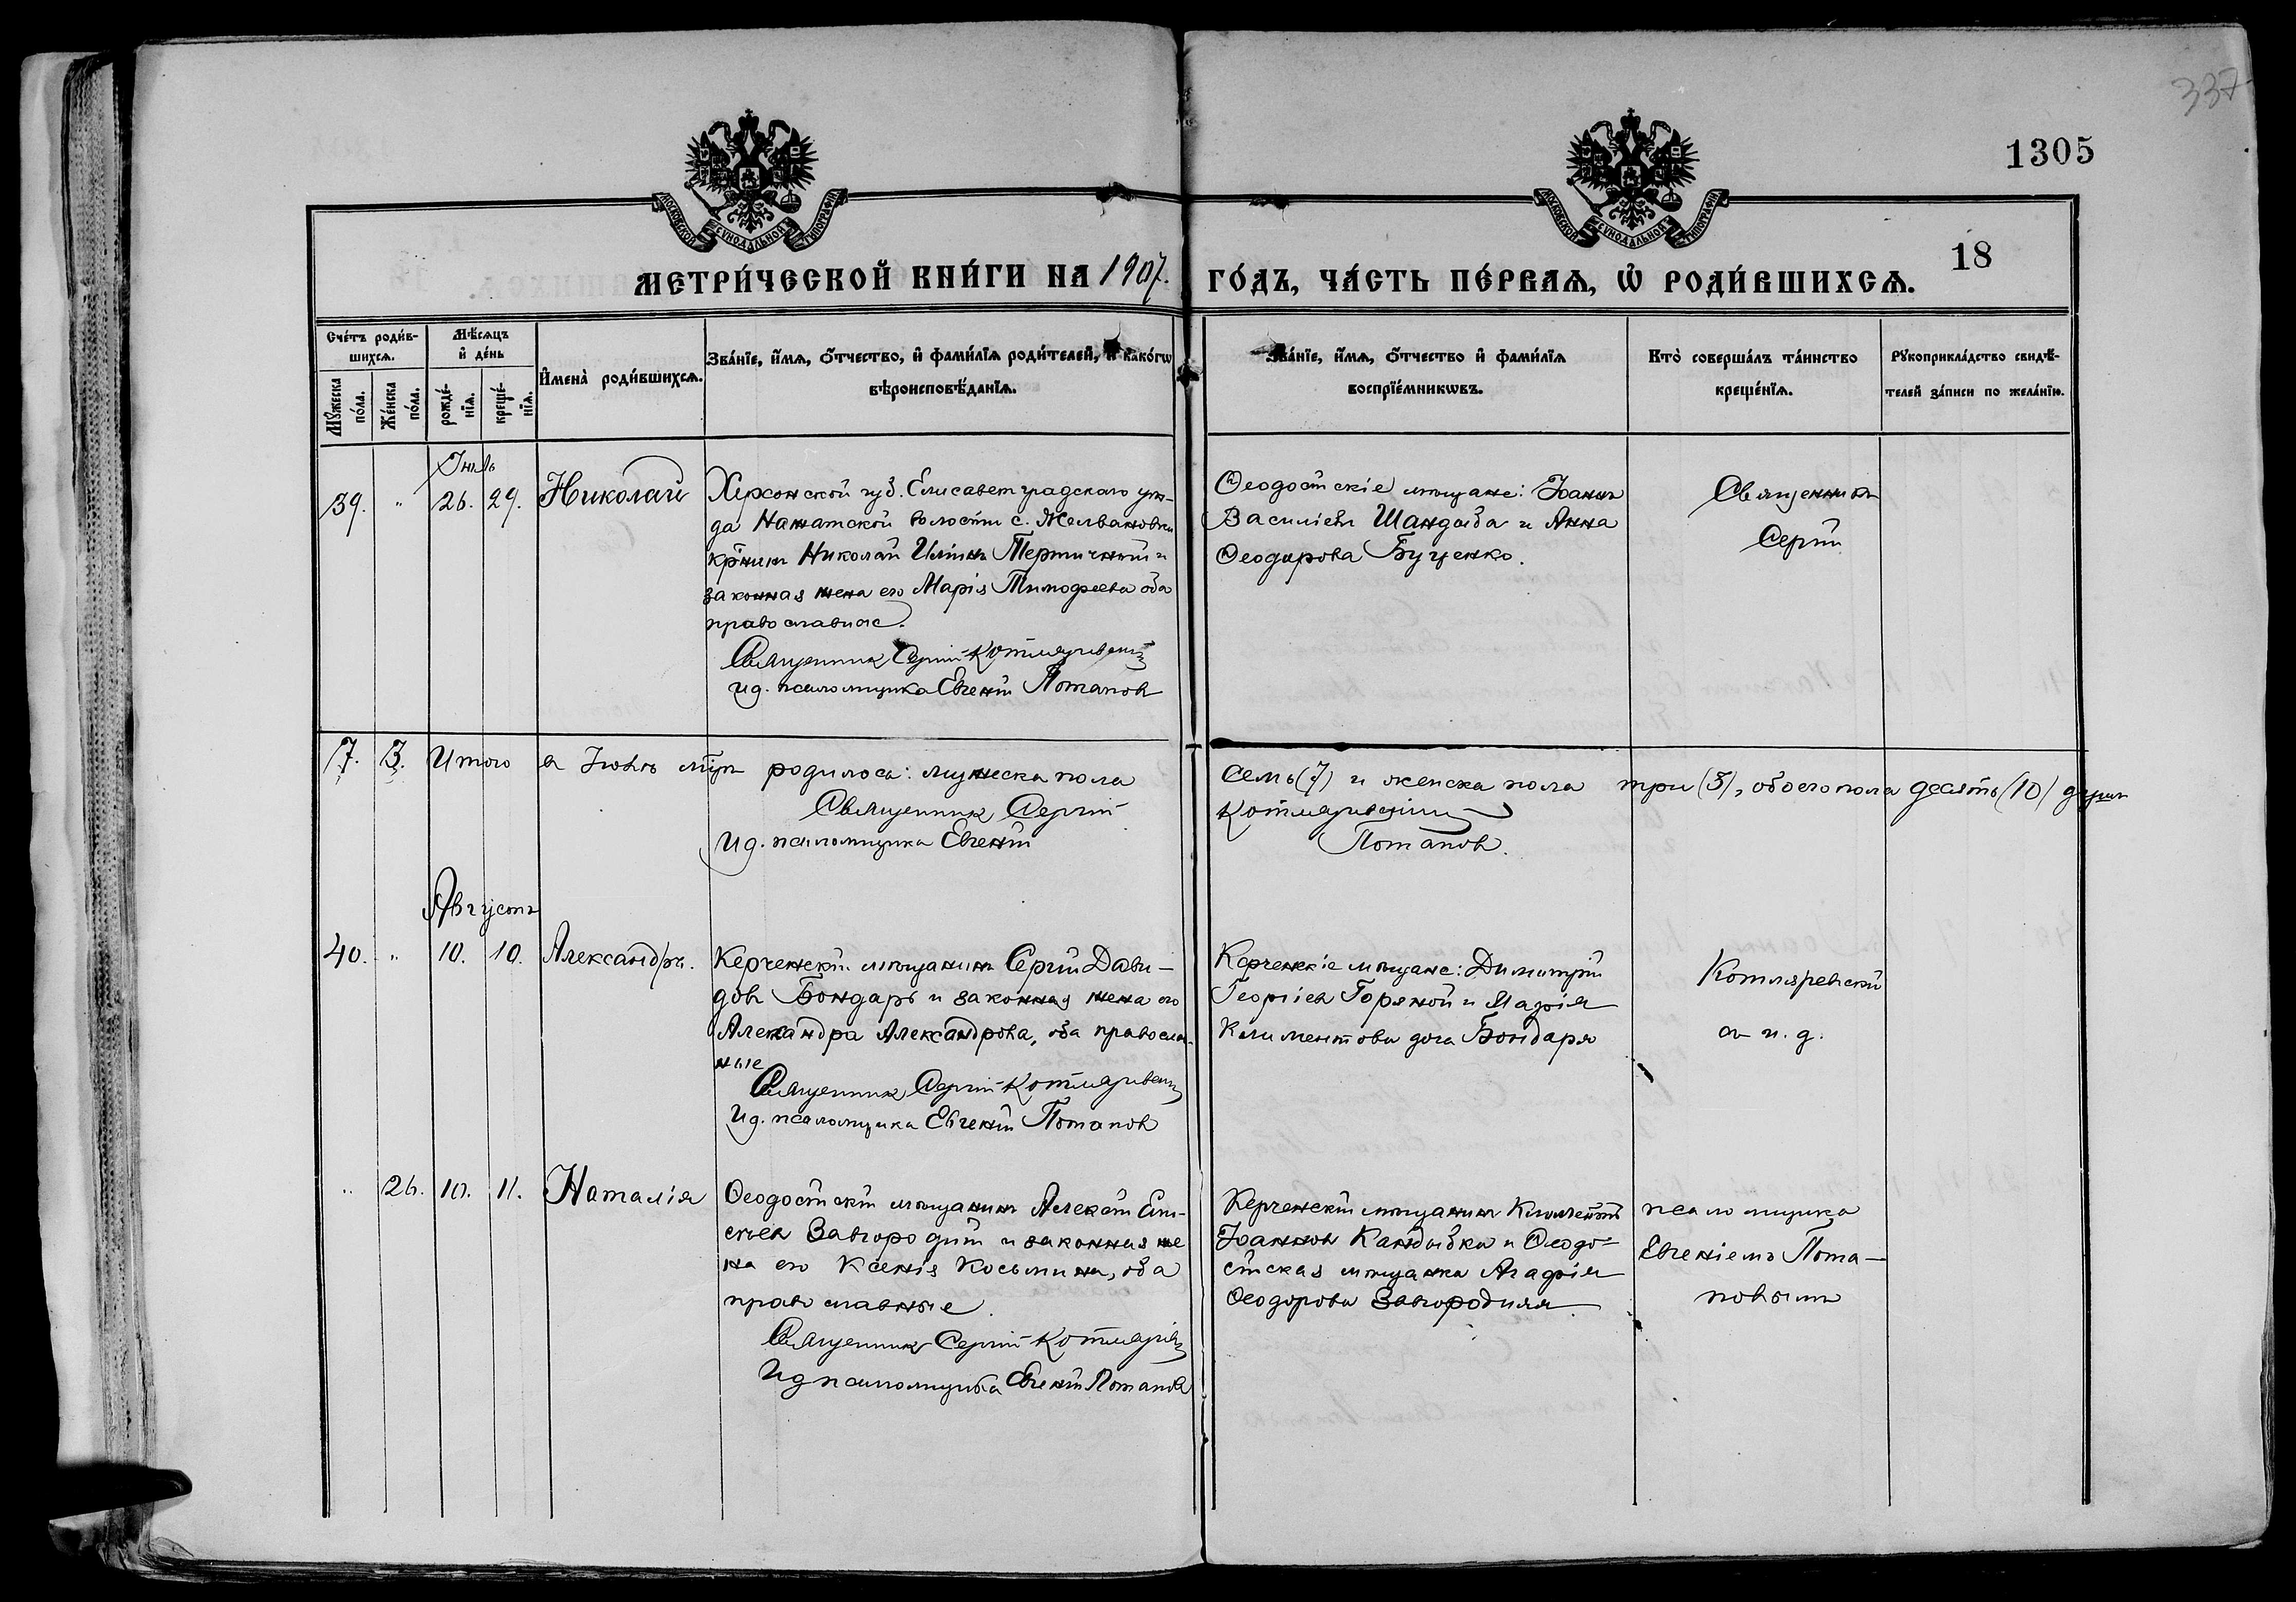 337
1305
18
МОСКОВСКОЙ СѴНОДАЛЬНОЙ ТИПОГРАФІИ
МОСКОВСКОЙ СѴНОДАЛЬНОЙ ТИПОГРАФІИ
МЕТРИ́ЧЕСКОЙ КНИ́ГИ НА 1907. ГО́ДЪ, ЧА́СТЬ ПЕ́РВАѦ, Ѡ҆ РОДИ́ВШИХСѦ.
Сче́тъ роди́в-
шихсѧ.
Мꙋ́жеска по́ла.
Же́нска по́ла.
Мѣ́сѧцъ
и҆ де́нь
рожде́-
нїѧ.
креще́-
нїѧ.
И҆мена̀ роди́вшихсѧ.
Зва́нїе, и҆́мѧ, ѻ҆́тчество, и҆ фами́лїѧ роди́телей, и҆ како́гѡ
вѣроисповѣ́данїѧ.
Зва́нїе, и҆́мѧ, ѻ҆́тчество и҆ фами́лїѧ
воспрїе́мникѡвъ.
Кто̀ соверша́лъ та́инство
креще́нїѧ.
Рꙋкоприкла́дство свидѣ́-
телей за́писи по жела́нїю.
Іюль
39. " 26. 29. Николай
Херсонской губ. Елисаветградскаго уѣз-
да Нажатской волости с. Желвановки
кр̃нинъ Николай Иліинъ Тертичный и
законная жена его Марія Тимофеева оба
православные.
Священникъ Сергій Котляревскій
И.д. псаломщика Евгеній Потаповъ
Ѳеодосійскіе мѣщане: Іоаннъ
Василіевъ Шандыба и Анна
Ѳеодорова Буценко.
Священникъ
Сергій
7. 3. Итого въ Іюлѣ м̃цѣ родилось: мужеска пола семь (7) и женска пола три (3), обоего пола десять (10) душъ
Священникъ Сергій Котляревскій
И.д. псаломщика Евгеній Потаповъ.
Августъ
40. " 10. 10. Александръ.
Керченскій мѣщанинъ Сергій Дави-
довъ Бондарь и законная жена его
Александра Александрова, оба православ-
ные
Священникъ Сергій Котляревскій
И.д. псаломщика Евгеній Потаповъ
Керченскіе мѣщане: Димитрій
Георгіевъ Горяной и Марія
Климентова дочь Бондаря
Котляревскій
съ и. д.
" 26. 10. 11. Наталія
Ѳеодосійскій мѣщанинъ Алексій Ели-
сѣевъ Завгородній и законная же
на его Ксенія Косьмина, оба
православные.
Священникъ Сергій Котляревскій
И.д. псаломщика Евгеній Потаповъ
Керченскій мѣщанинъ Климентъ
Іоанновъ Кандыбка и Ѳеодо-
сійская мѣщанка Агафія
Ѳеодорова Завгородняя.
псаломщика
Евгеніемъ Пота-
повымъ